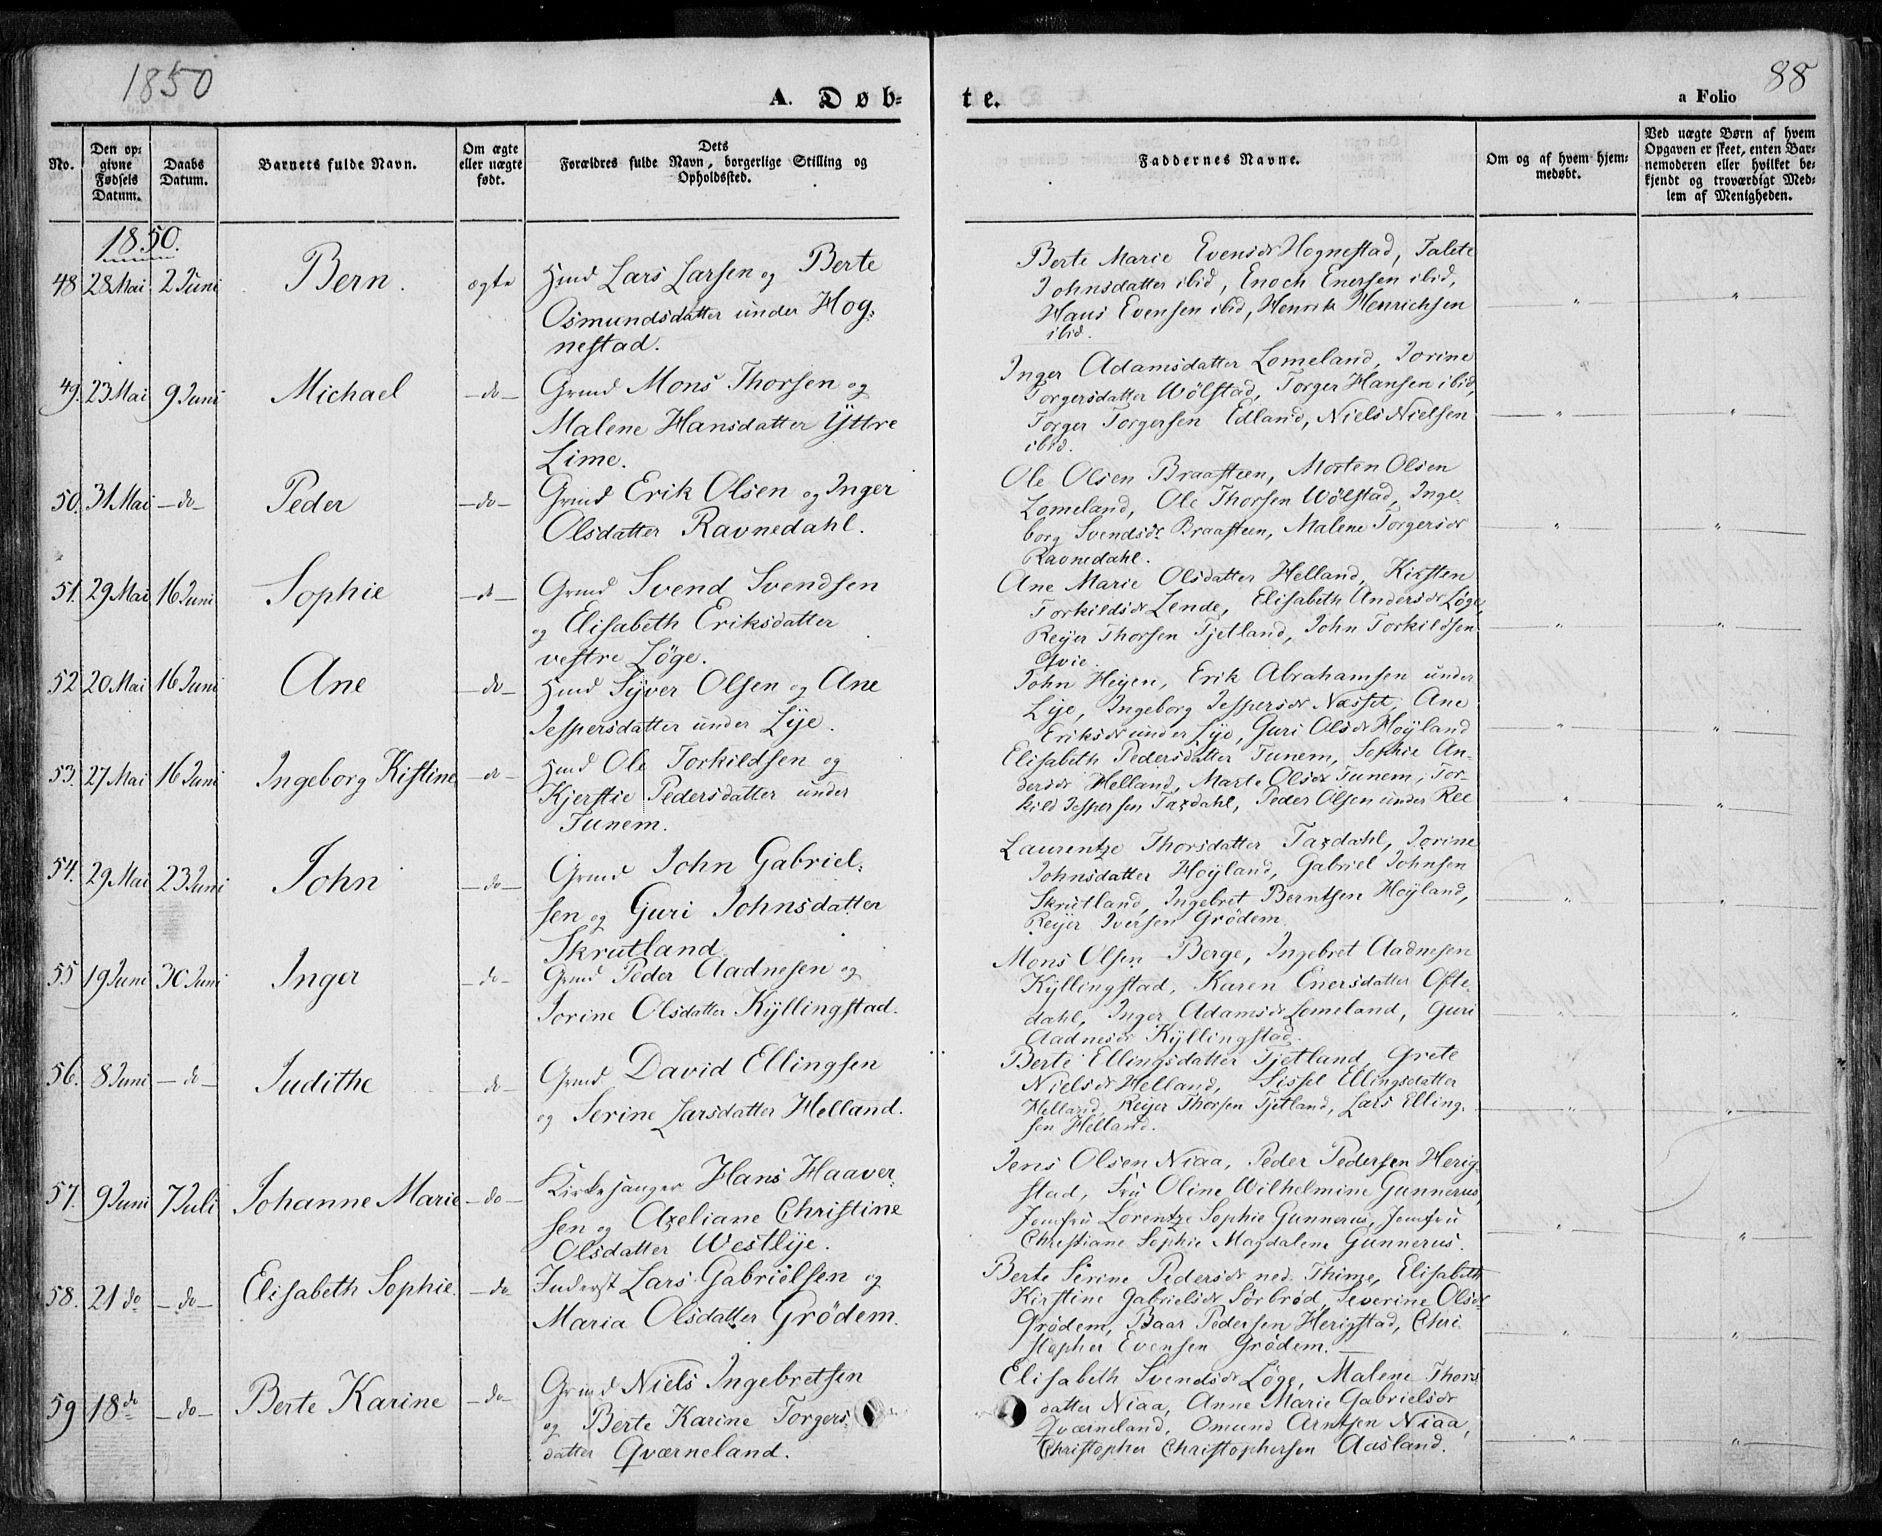 1850
88
A. Døb-
te.
a Folio
No.
Den op-
givne
Fødsels
Datum.
Daabs
Datum.
Barnets fulde Navn.
Om ægte
eller uægte
født.
Dets
Forældres fulde Navn, borgerlige Stilling og
Opholdssted.
Faddernes Navne.
Om og af hvem hjem-
medøbt.
Ved uægte Børn af hvem
Opgaven er skeet, enten Bar-
nemoderen eller hvilket be-
kjendt og troværdigt Med-
lem af Menigheden.
1850.
48 28 Mai 2 Juni Bern. ægte Hmd Lars Larsen og Berte
Osmundsdatter under Hog-
nestad.
Berte Marie Evensdr Hognestad, Talete
Johnsdatter ibid, Enoch Enersen ibid,
Hans Evensen ibid, Henrik Henrichsen
ibid.
49. 23 Mai 9 Juni Michael -do- Grmd Mons Thorsen og
Malene Hansdatter Yttre
Lime.
Inger Adamsdatter Lomeland, Jorine
Torgersdatter Wølstad, Torger Hansen ibid,
Torger Torgersen Edland, Niels Nielsen
ibid.
50. 31 Mai -do- Peder -do- Grmd Erik Olsen og Inger
Olsdatter Ravnedahl.
Ole Olsen Braasteen, Morten Olsen
Lomeland, Ole Thorsen Wølstad, Inge-
borg Svendsdr Braasteen, Malene Torgersdr
Ravnedahl.
51. 29 Mai 16 Juni Sophie -d- Grmd Svend Svendsen
og Elisabeth Eriksdatter
vestre Løge.
Ane Marie Olsdatter Helland, Kirsten
Torkildsdr Lende, Elisabeth Andersdr Løge,
Reyer Thorsen Tjetland, John Torkildsen
Qvie.
52 20 Mai 16 Juni Ane -do- Hmd Syver Olsen og Ane
Jespersdatter under Lye.
John Heyen, Erik Abrahamsen under
Lye, Ingeborg Jespersdr Næsset, Ane
Eriksdr under Lye, Guri Olsdr Høyland
53. 27 Mai 16 Juni Ingeborg Kistine -do- Hmd Ole Torkildsen og
Kjerstie Pedersdatter under
Tunem.
Elisabeth Pedersdatter Tunem, Sophie An-
dersdr Helland, Marte Olsdr Tunem, Tor-
kild Jespersen Taxdahl, Peder Olsen under Ree
54. 29 Mai 23 Juni John -do- Grmd John Gabriel-
sen og Guri Johnsdatter
Skrutland
Laurentze Thorsdatter Taxdahl, Jorine
Johnsdatter Høyland, Gabriel Johnsen
Skrutland, Ingebret Berntsen Høyland,
Reyer Iversen Grødem.
55 19 Juni 30 Juni Inger -do- Grmd Peder Aadnesen og
Jorine Olsdatter Kyllingstad.
Mons Olsen Berge, Ingebret Aadnesen
Kyllingstad, Karen Enersdatter Ofte-
dahl, Inger Adamsdr Lomeland, Guri
Aadnesdr Kyllingstad.
56. 8 Juni -do- Judithe -do- Grmd David Ellingsen
og Serine Larsdatter Helland.
Berte Ellingsdatter Tjetland, Grete
Nielsdr Helland, Sissel Ellingsdatter
Helland, Reyer Thorsen Tjetland, Lars Elling-
sen Helland.
57. 9 Juni 7 Juli Johanne Marie -do- Kirkesanger Hans Haaver-
sen og Axeliane Christine
Olsdatter Westlye.
Jens Olsen Niaa, Peder Pedersen Herig-
stad, Fru Oline Wilhelmine Gunnerus,
Jomfru Lorentze Sophie Gunnerus, Jomfru
Christiane Sophie Magdalene Gunnerus.
58. 21 do -do- Elisabeth Sophie. -do Inderst Lars Gabrielsen og
Maria Olsdatter Grødem.
Berte Serine Pedersdr ned. Thime, Elisabeth
Kirstine Gabrielsdr Sørbrød, Severine Olsdr
Grødem, Baar Pedersen Herigstad, Chri-
stopher Evensen Grødem.
59 18 do -do- Berte Karine -do- Grmd Niels Ingebretsen
og Berte Karine Torgers-
datter Qværneland.
Elisabeth Svendsdr Løge, Malene Thors
datter Niaa, Anne Marie Gabrielsdr
Qværneland, Omund Arntsen Niaa,
Christopher Christophersen Aasland.